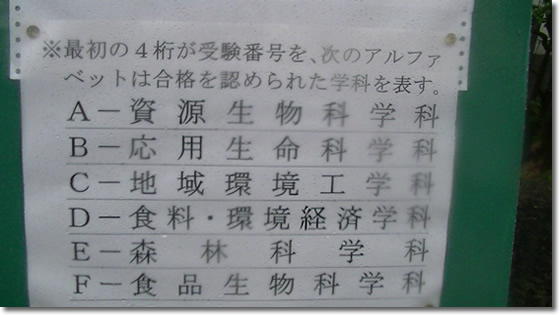 ※最初の4桁が受験番号を、次のアルファ
ベットは合格を認められた学科を表す。
A－資源生物科学科
B－応用生命科学科
C－地域環境工学科
D－食料・環境経済学科
E－森林科学科
F－食品生物科学科